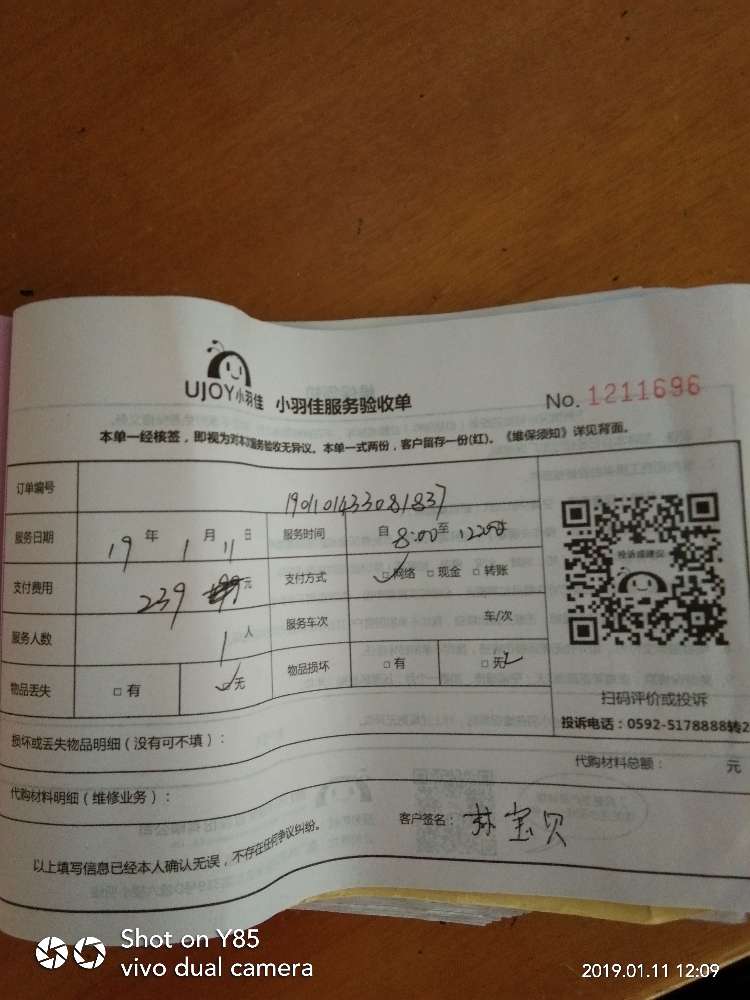 UJOY小羽佳 小羽佳服务验收单 No. 1211696
本单一经核签，即视为对本次服务验收无异议。本单一式两份，客户留存一份(红)。《维保须知》详见背面。
订单编号 190101433081837
服务日期 19 年 1 月 11 日 服务时间 自 8:00 至 12:00
支付费用 239 元 支付方式 ☑网络 □现金 □转账
服务人数 1 人 服务车次 车/次
物品丢失 □有 ☑无 物品损坏 □有 ☑无
投诉或建议
扫码评价或投诉
投诉电话：0592-5178888转2
损坏或丢失物品明细（没有可不填）：
代购材料总额： 元
代购材料明细（维修业务）：
客户签名：林宝贝
以上填写信息已经本人确认无误，不存在任何争议纠纷。
Shot on Y85
vivo dual camera
2019.01.11 12:09